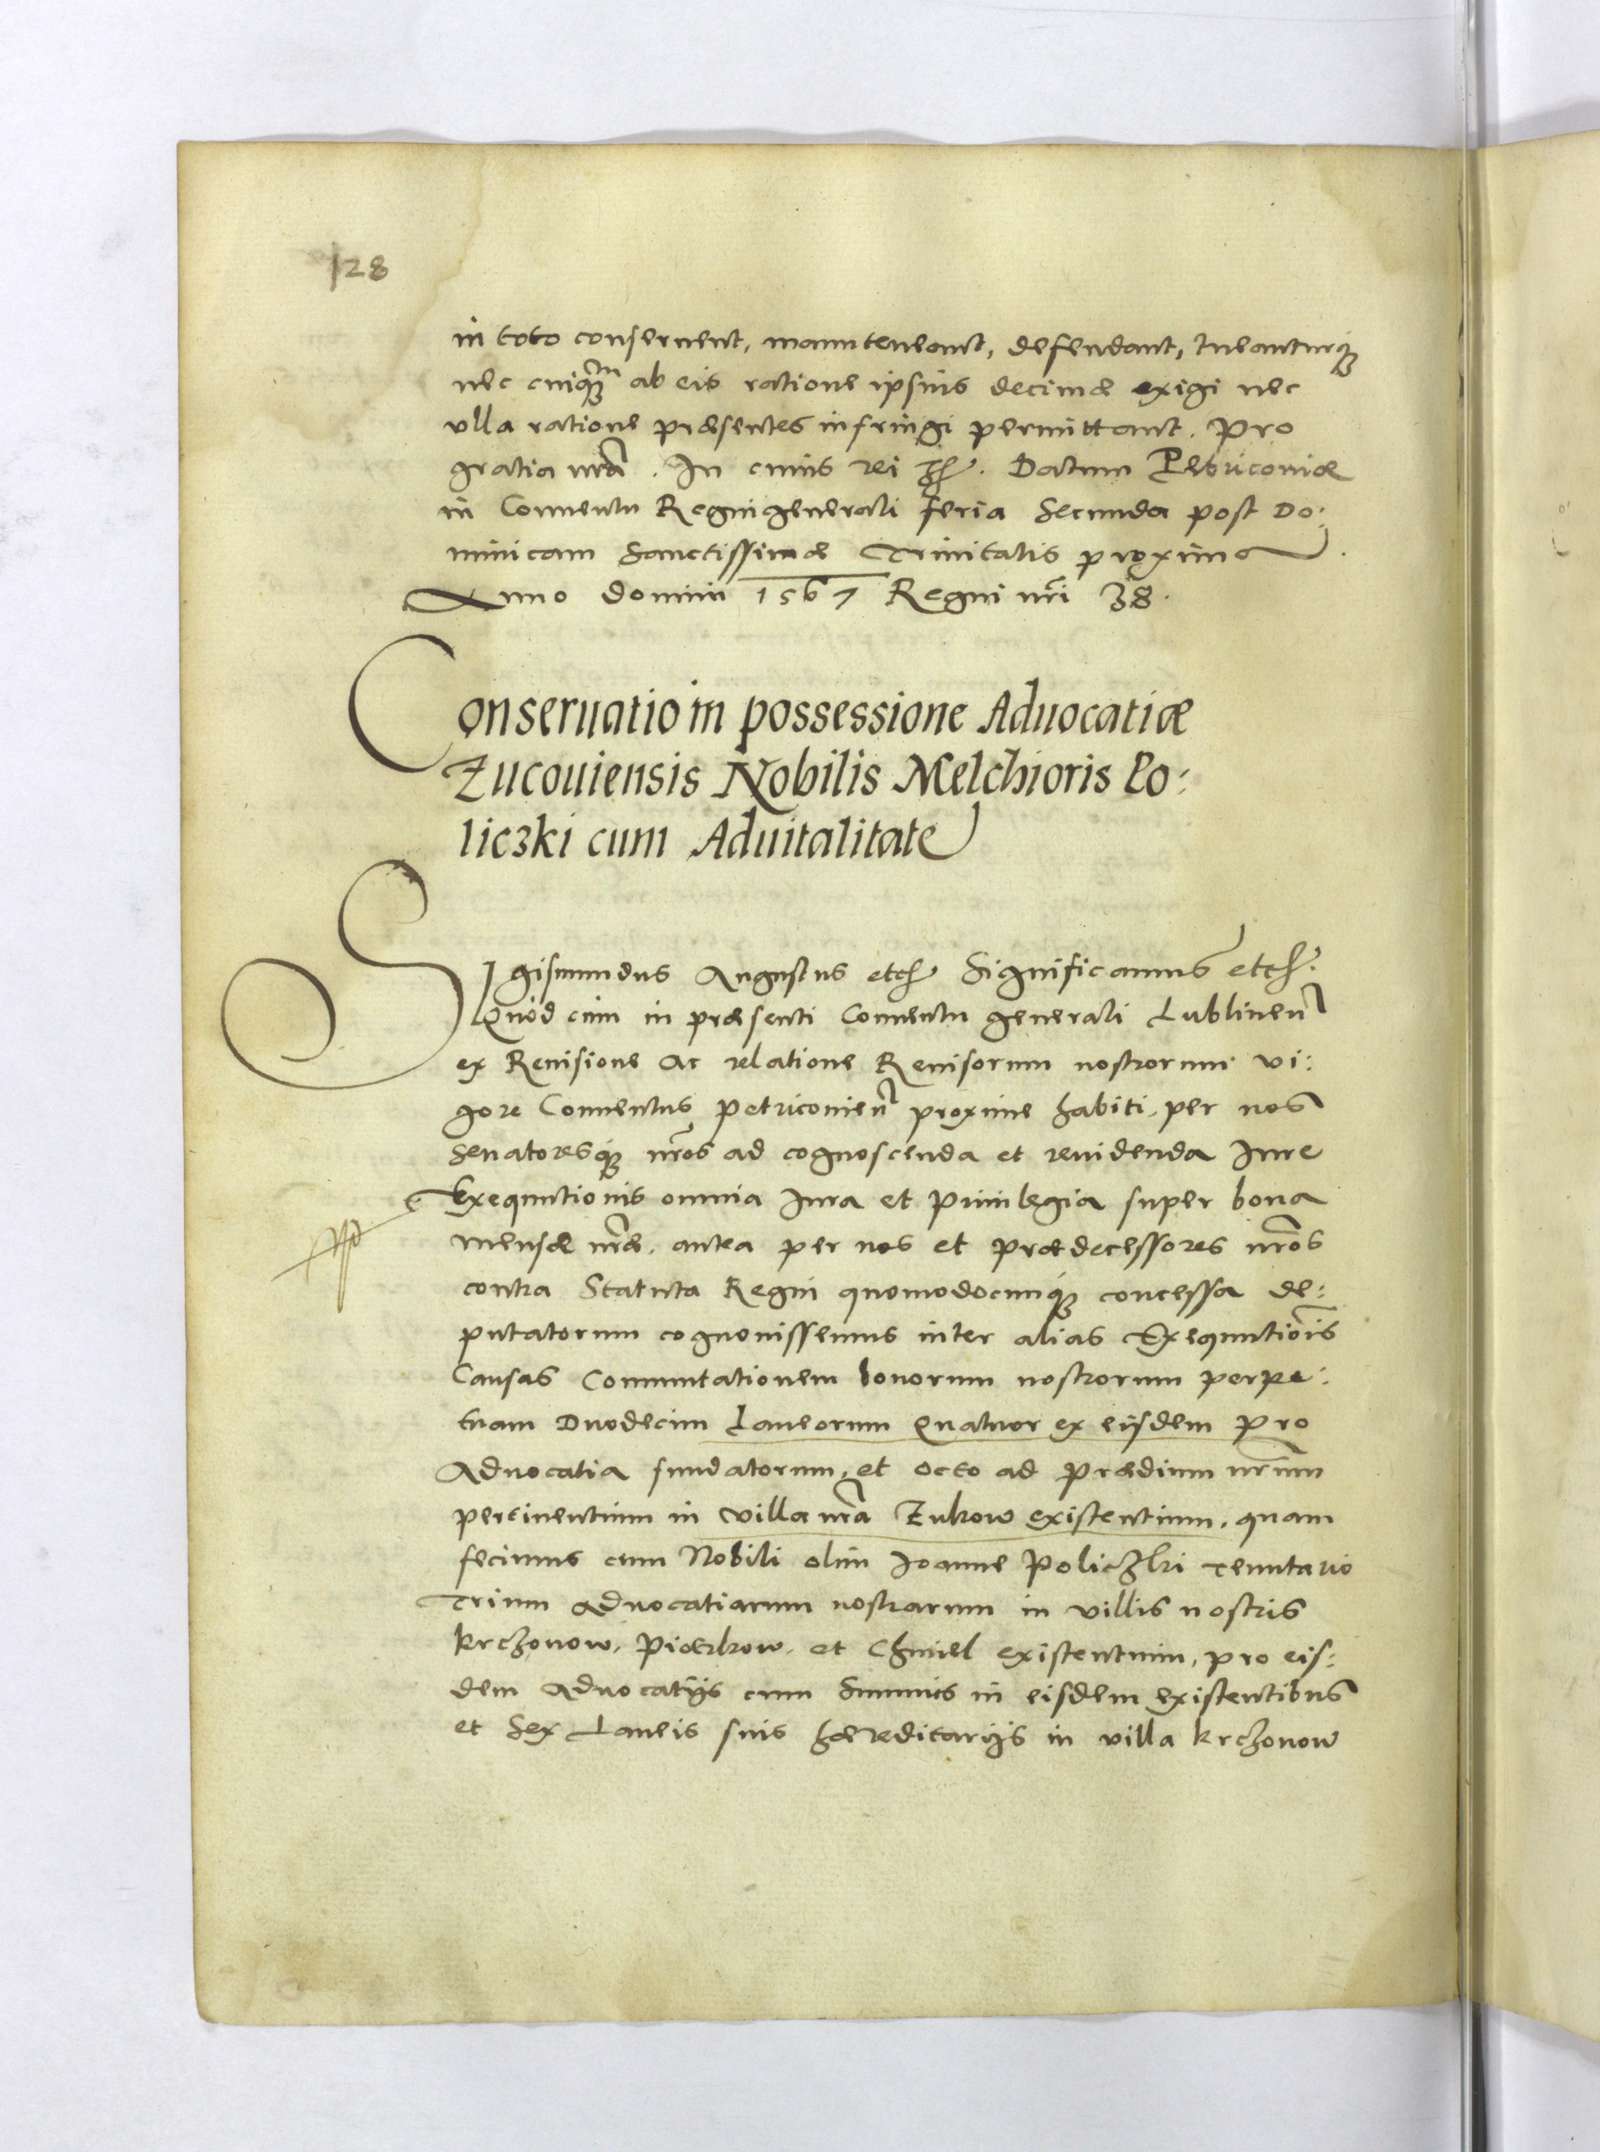 128
in toto conseruent, manuteneant, defendant, tueanturq̃
nec cuiq̃m ab eis ratione ipsius decimæ exigi nec
vlla ratione præsentes infringi permittant. Pro
gratia nr̃a. In cuius rei Datum Petricouiæ
in Conuentu Regni generali feria Secunda post Do:
minicam Sanctissimæ Trinitatis proxima.
Anno domini 1567 Regni nr̃i 38.
Conseruatio in possessione Aduocatiæ
Zucouiensis Nobilis Melchioris Po:
liczki cum Aduitalitate
Sigismundus Augustus etc̃ Significamus etc̃.
Quod cum in præsenti Conuentu generali Lublinen̄
ex Reuisione ac relatione Reuisorum nostrorum vi:
gore Conuentus petriconien̄ proxime habiti, per nos
Senatoresq̃ nr̃os ad cognoscenda et reuidenda Iure
Exequutionis omnia Iura et priuilegia super bona
mensæ nr̃æ, antea per nos et prædecessores nr̃os
contra Statuta Regni quomodocunq̃ concessa de:
putatorum cognouissemus inter alias Exequutiõis
Causas Commutationem bonorum nostrorum perpe:
tuam Duodecim Laneorum Quatuor ex eijsdem pro
Aduocatia fundatorum, et octo ad prædium nr̃um
pertinentium in villa nr̃a Zukow existentium, quam
fecimus cum Nobili olim Ioanne Policzki tenutario
Trium Aduocatiarum nostrarum in villis nostris
krczonow, Piotrkow, et Chmiel existentium, pro eis:
dem Aduocatijs cum Summis in eisdem existentibus
et Sex Laneis suis hæreditarijs in villa krczonow